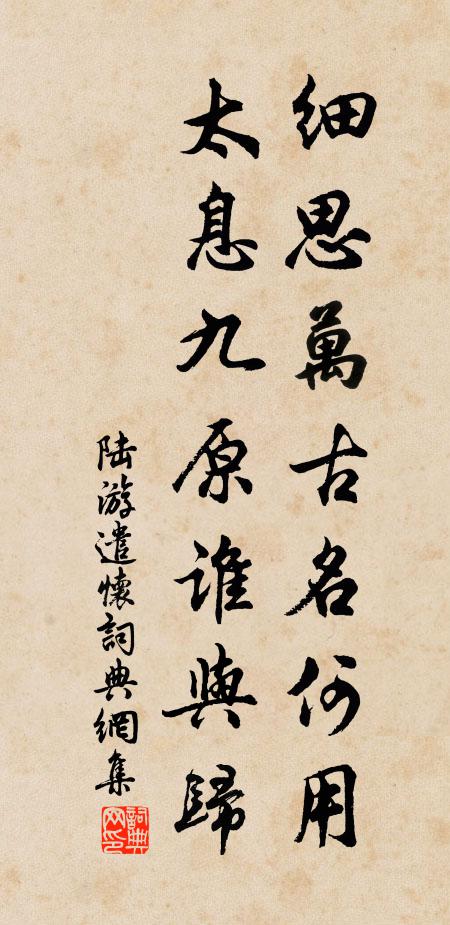 細思萬古名何用
太息九原誰與歸
陆游遣懷詞典網集
詞典网印